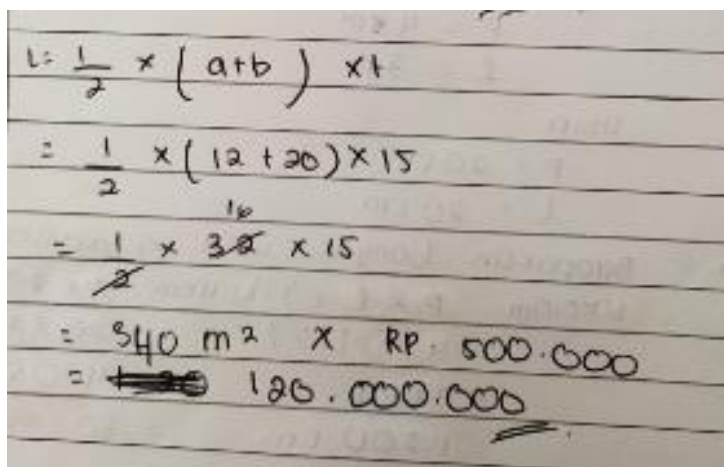 L = 1/2 × (a+b) × t
= 1/2 × (12 + 20) × 15
16
= 1/2 × 32 × 15
= 340 m² × RP. 500.000
= 120.000.000